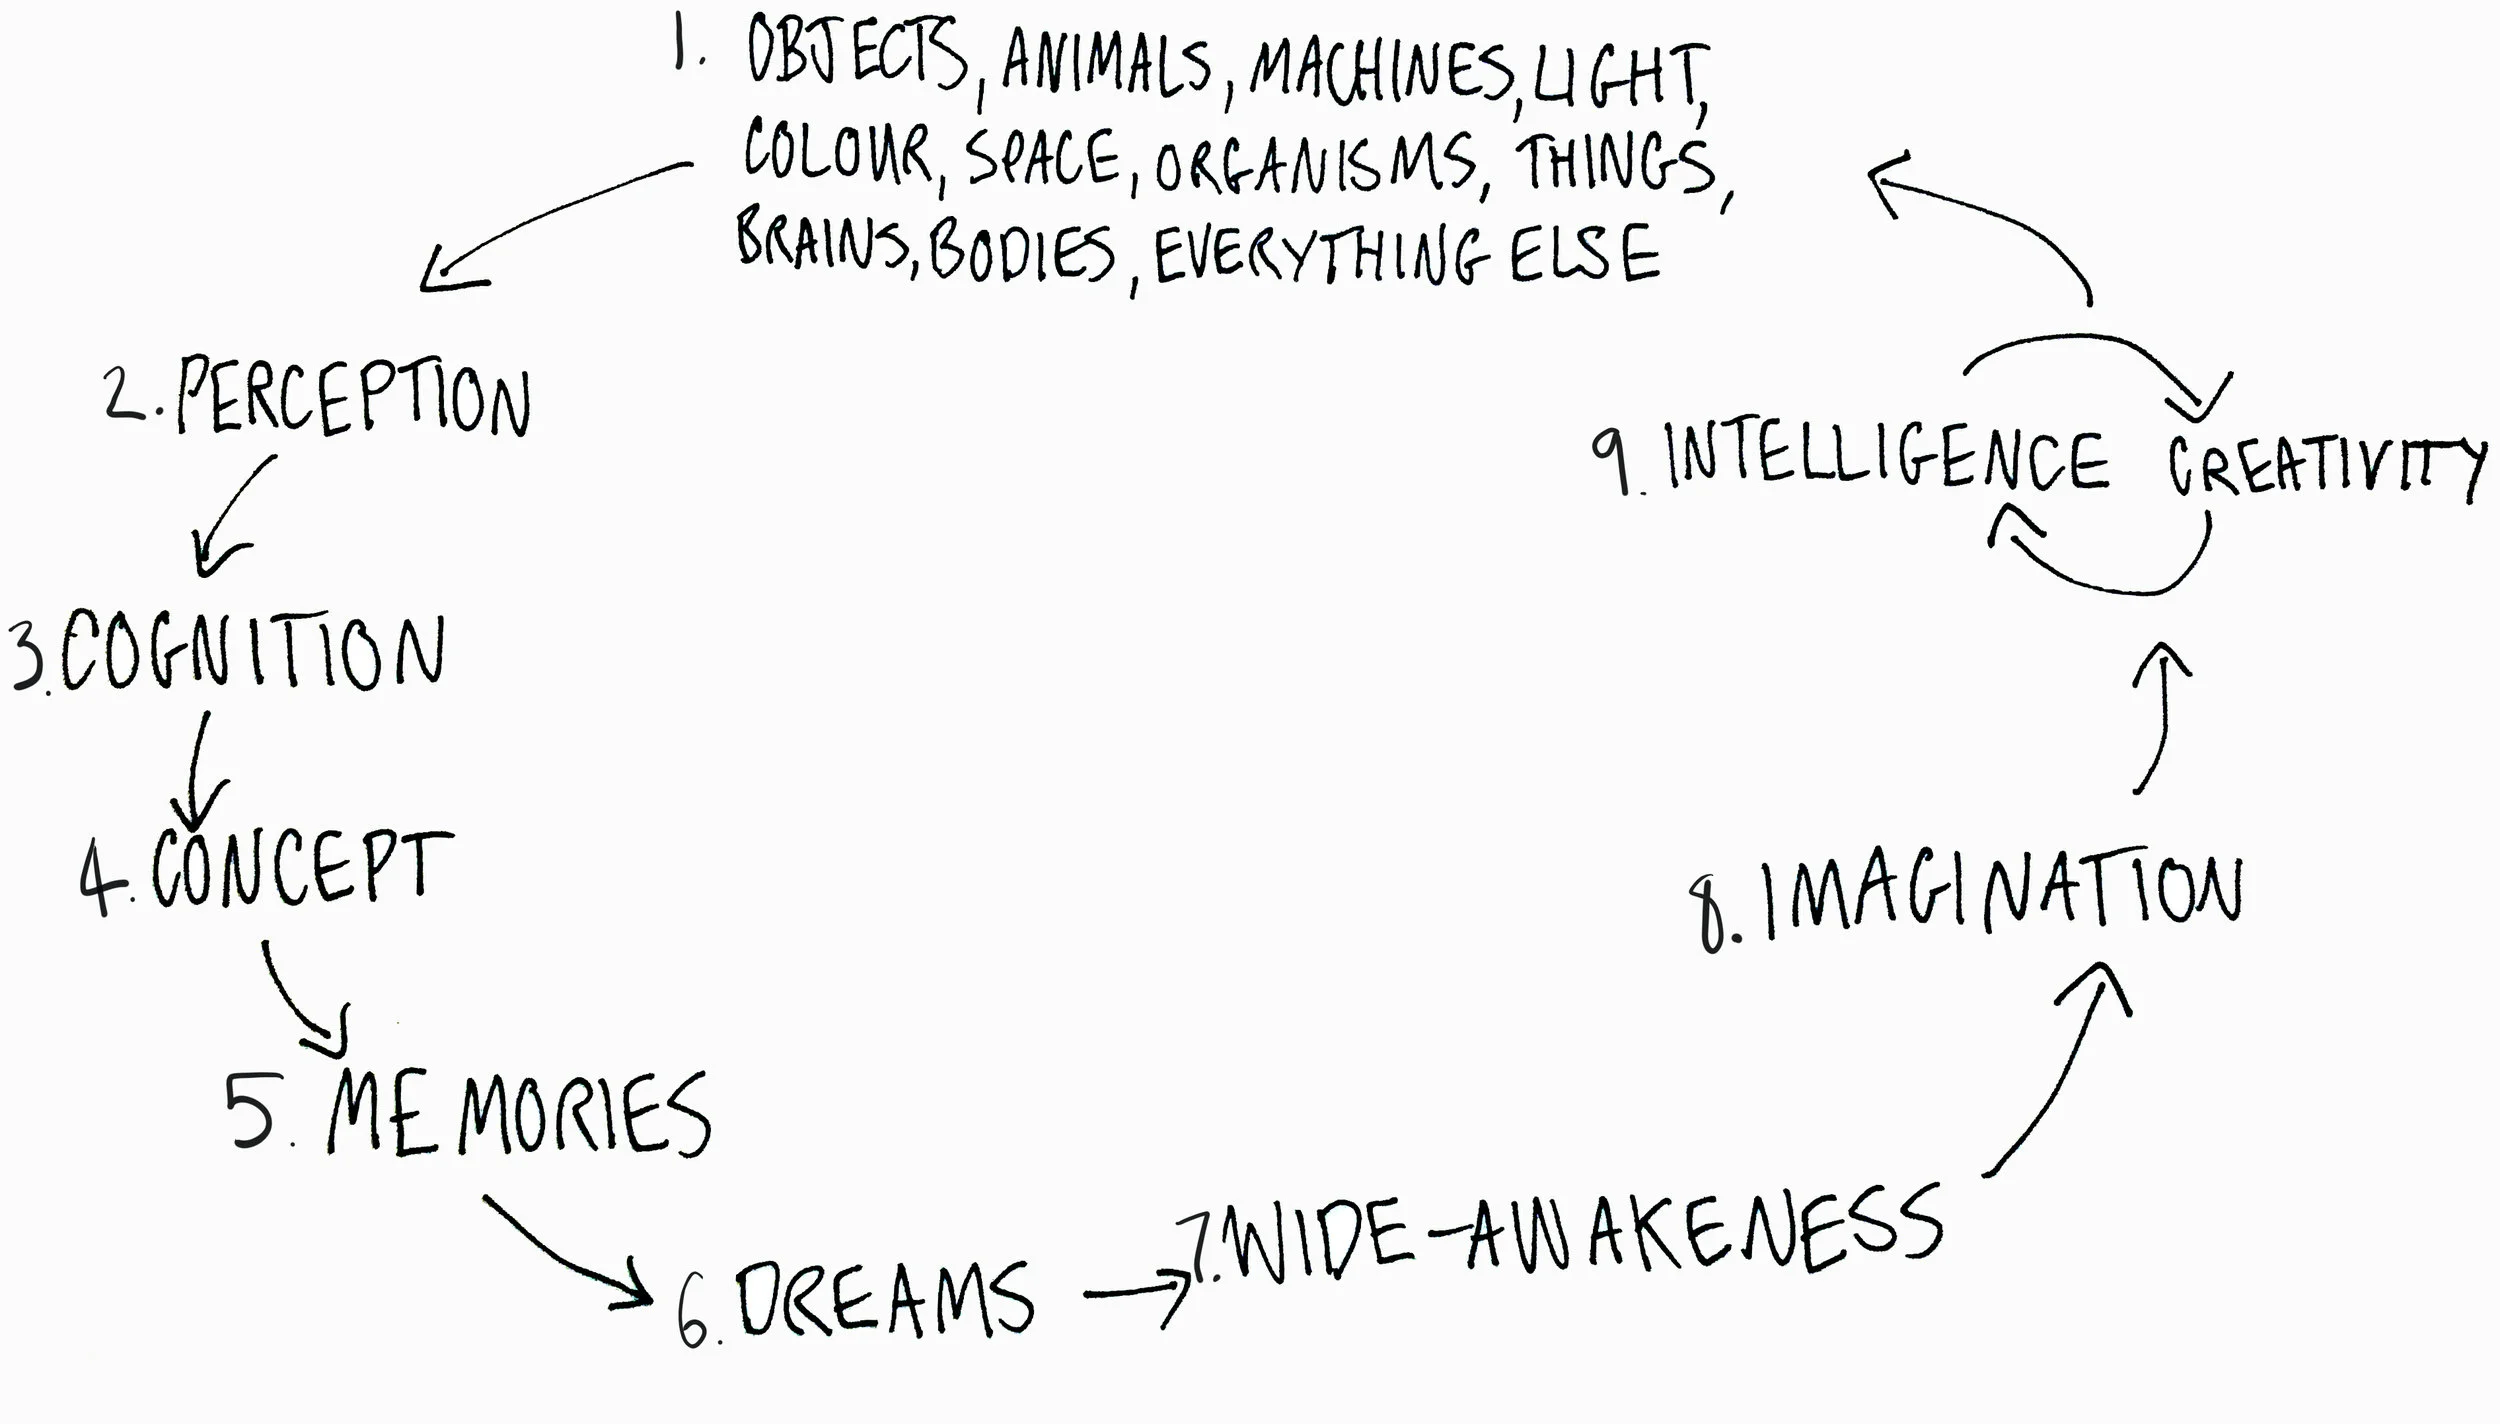 1. OBJECTS, ANIMALS, MACHINES, LIGHT,
COLOUR, SPACE, ORGANISMS, THINGS,
BRAINS, BODIES, EVERYTHING ELSE
2. PERCEPTION
3. COGNITION
4. CONCEPT
5. MEMORIES
6. DREAMS
7. WIDE-AWAKENESS
8. IMAGINATION
9. INTELLIGENCE CREATIVITY